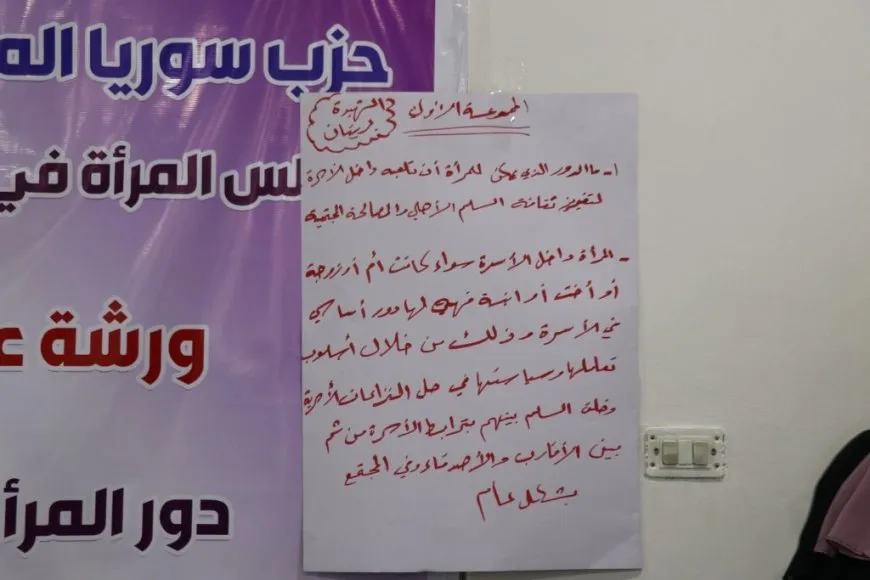 حزب سوريا الم
لس المرأة في
ورشة ع
دور المرأ
المجموعة الأولى
الشهيدة
ريتان
١- ما الدور الذي يمكن للمرأة أن تلعبه داخل الأسرة
لتعزيز ثقافة السلم الأهلي والمصالحة المجتمعية
- المرأة داخل الأسرة سواء كانت أم أو زوجة
أو أخت أو ابنة فهي لها دور أساسي
في الأسرة وذلك من خلال أسلوب
تعاملها وسياستها في حل النزاعات الأسرية
وخلق السلم بينهم بترابط الأسرة من ثم
بين الأقارب والأصدقاء وفي المجتمع
بشكل عام